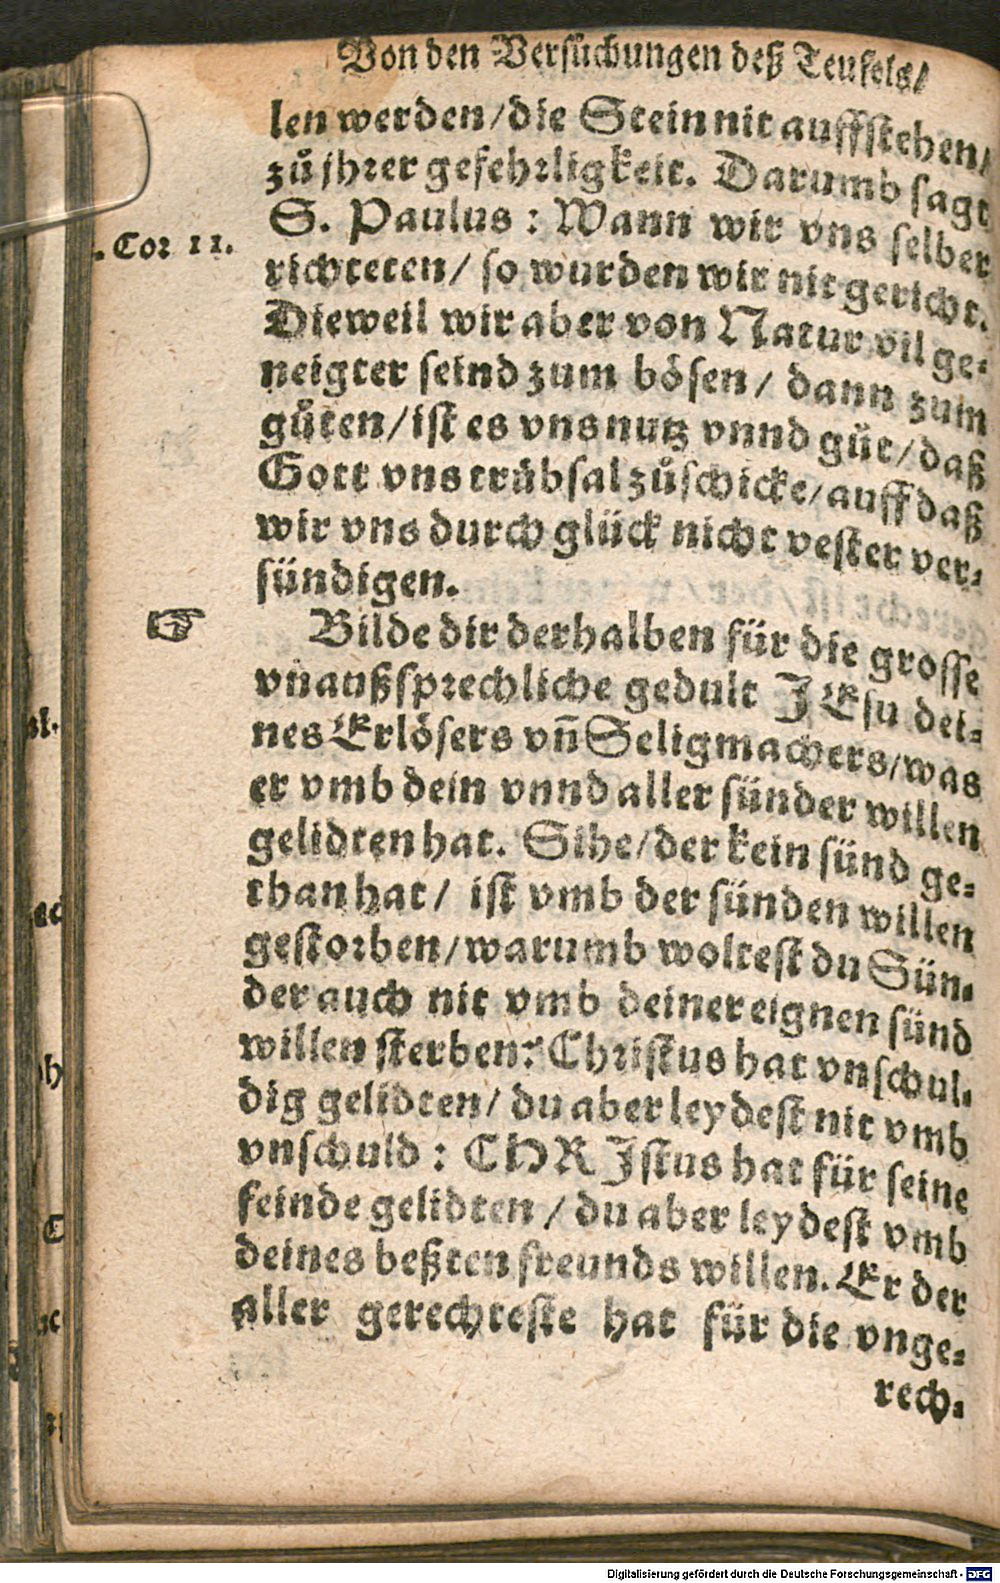 Von den Versůchungen deß Teufels/
len werden/die Stein nit auffstehen/
zů jhrer gefehrligkeit. Darumb sagt
S. Paulus : Wann wir vns selber
. Cor 11.
richteten/ so wurden wir nit gericht.
Dieweil wir aber von Natur vil ge-
neigter seind zum bösen/ dann zum
gůten/ist es vns nutz vnnd gůt/daß
Gott vns trübsal zůschicke/auff daß
wir vns durch glück nicht vester ver-
sündigen.
☞ Bilde dir derhalben für die grosse
vnaußsprechliche gedult JEsu dei-
nes Erlösers vñ Seligmachers/was
er vmb dein vnnd aller sünder willen
gelidten hat. Sihe/der kein sünd ge-
than hat/ ist vmb der sünden willen
gestorben/warumb woltest du Sün-
der auch nit vmb deiner eignen sünd
willen sterben? Christus hat vnschul-
dig gelidten/ du aber leydest nit vmb
vnschuld : CHRJstus hat für seine
feinde gelidten / du aber leydest vmb
deines beßten freunds willen. Er der
aller gerechteste hat für die vnge-
rech-
Digitalisierung gefördert durch die Deutsche Forschungsgemeinschaft - DFG